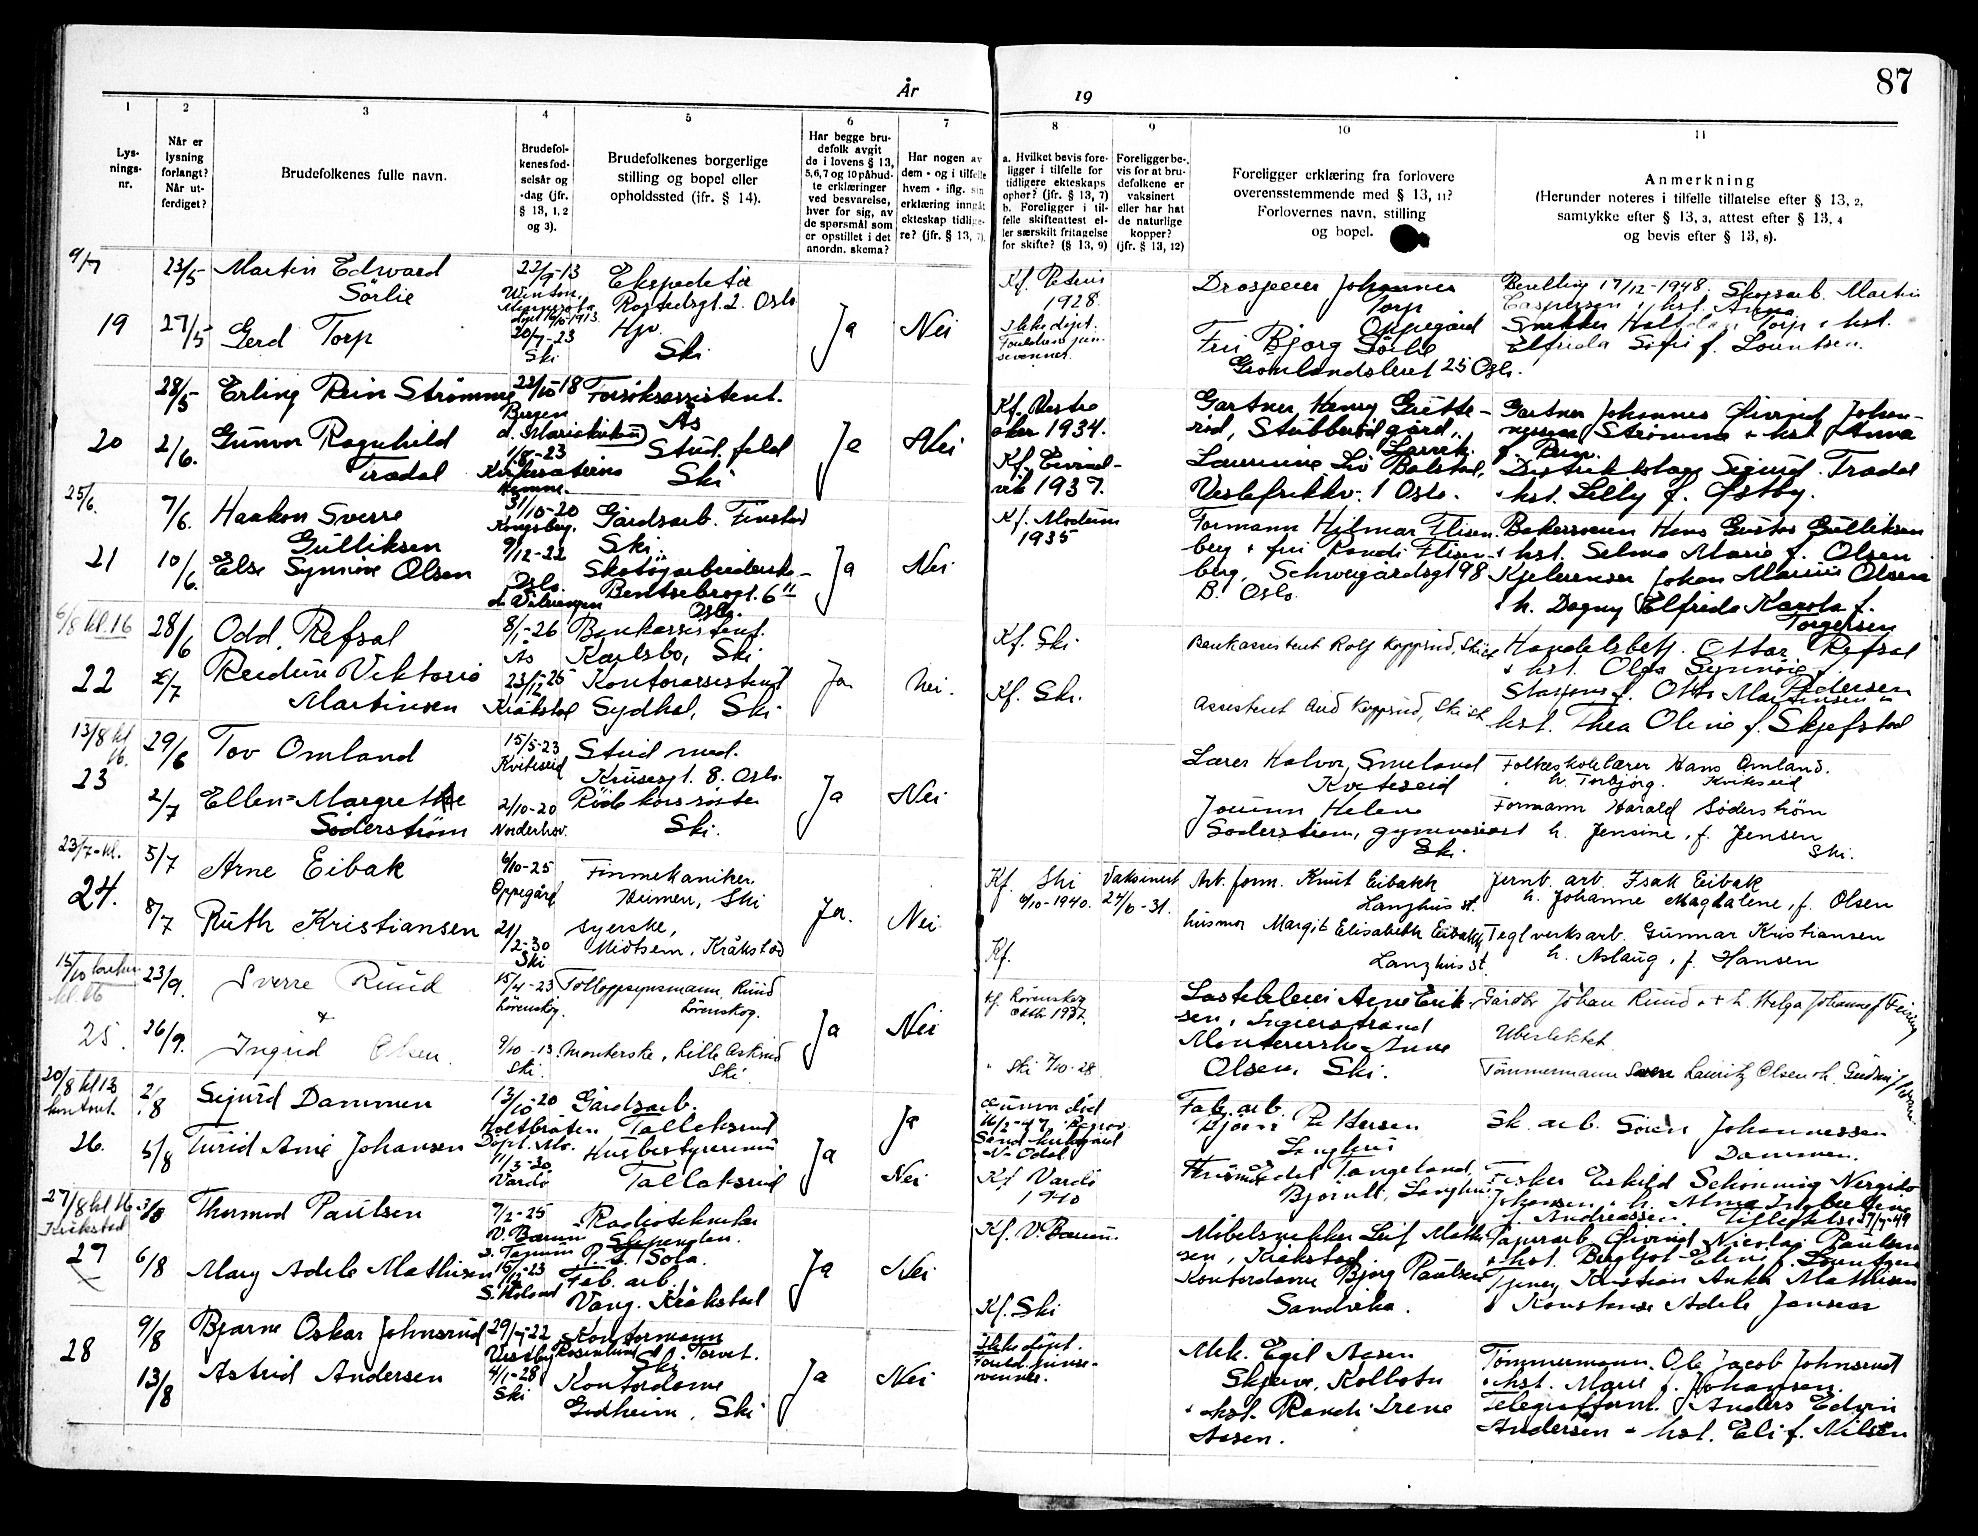 87
År
19
1
2
3
4
5
6
7
8
9
10
11
Lys-
nings-
nr.
Når er
lysning
forlangt?
Når ut-
ferdiget?
Brudefolkenes fulle navn.
Brudefol-
kenes fød-
selsår og
-dag (jfr.
§ 13, 1, 2
og 3).
Brudefolkenes borgerlige
stilling og bopel eller
opholdssted (jfr. § 14).
Har begge bru-
defolk avgit
de i lovens § 13,
5,6,7 og 10 påbud-
te erklæringer
ved besvarelse,
hver for sig, av
de spørsmål som
er opstillet i det
anordn. skema?
Har nogen av
dem - og i tilfelle
hvem - iflg. sin
erklæring inngåt
ekteskap tidlige-
re? (jfr. § 13, 7).
a. Hvilket bevis fore-
ligger i tilfelle for
tidligere ekteskaps
ophør? (jfr. § 13, 7)
b. Foreligger i til-
felle skifteattest el-
ler særskilt fritagelse
for skifte? (§ 13, 9)
Foreligger be-
vis for at bru-
defolkene er
vaksinert
eller har hat
de naturlige
kopper?
(jfr. § 13, 12)
Foreligger erklæring fra forlovere
overensstemmende med § 13, 11?
Forlovernes navn, stilling
og bopel.
Anmerkning
(Herunder noteres i tilfelle tillatelse efter § 13, 2,
samtykke efter § 13, 3, attest efter § 13, 4
og bevis efter § 13, 8).
9/7
19
23/5
27/5
Martin Edward
Sörlie
Gerd Torp
22/9-13
20/7-23
Ski
Ekspeditör
Rostedsgt. 2. Oslo
Hjv.
Ski
Ja
Nei
Kf. Petrus
1928.
Ikke döpt.
Drosjeeier Johannes
Torp
Oppegård
Fru Bjorg Sörlie
Grönlandsleret 25 Oslo.
17/12-1948. Skogsarb. Martin
Caspersen + hst. Anna
Snekker Halfdan Torp + hst.
Elfrida Sofie f. Lorentsen.
20
28/5
2/6.
Erling Rein Strømme
Gunvor Ragnhild
Tradal
22/10-18
Bergen
1/8-23
Hemne.
Forsöksassistent.
Ås
Stud. filol
Ski
Ja
Nei
Kf. Vestre
aker 1934.
Kf. Eivind-
vik 1937.
Gartner Henry Grette-
rød, Stubberød gård,
Larvik.
Veslefrikkv. 1 Oslo.
Gartner Johannes Øivind Johan-
nessen Strømme + hst. Anna
f. Rein.
Distriktslege Sigurd Tradal
+ hst. Lilly f. Østby.
25/6.
21
7/6.
10/6.
Haakon Sverre
Gulliksen
Else Synnöve Olsen
31/10-20
Kongsberg.
9/12-22
Oslo
d. Vålerengen
Gårdsarb. Finstad
Ski.
Skotöyarbeiderske
Bentsebrogt. 6 II
Oslo.
Ja
Nei
Kf. Modum
1935
Formann Hilmar Flisen-
berg + fru Randi Flisen-
berg, Schweigårdsgt 98
B. Oslo.
Bakersvenn Hans Gustav Gulliksen
+ hst. Selma Marie f. Olsen
Kjelerenser Johan Marius Olsen
+ h. Dagny Elfrida Karola f.
Torgersen
6/8 kl. 16
22
28/6
2/7
Odd Refsal
Reidun Viktoria
Martinsen
8/1-26
Ås
23/12-25
Kråkstad
Bankassistent.
Karlsbo, Ski
Kontorassistent
Sydhal, Ski
Ja
Nei.
Kf. Ski
Kf. Ski.
Bankassistent Rolf Koppsrud, Ski st
Assistent Aud Koppsrud, Ski st.
Handelsbetj. Ottar Refsal
+ hst. Olga Synnöve f.
Pedersen
Stasjonsf. Otto Martinsen
hst. Thea Oline f. Skjefstad
13/8 kl
16.
23
29/6
2/7
Tov Omland
Ellen-Margrethe
Söderström
15/5-23
Kviteseid
2/10-20
Norderhov.
Stud med.
Krusesgt. 8. Oslo.
Röde kors söster
Ski.
Ja
Nei
Lærer Halvor Smeland
Kviteseid
Journ Helene
Söderström, gymnasiast
Ski.
Folkeskolelærer Hans Omland.
h. Torbjörg. Kviteseid
Formann Harald Söderström
h. Jensine, f. Jensen
Ski.
23/7-kl.
24.
5/7
8/7
Arne Eibak
Ruth Kristiansen
6/10-25
Oppegård
21/2-30
Ski
Finmekaniker
Heimen, Ski
syerske,
Midtsem, Kråkstad
Ja.
Nei
Kf. Ski
6/10-1940.
Kf.
Vaksinert
24/6-31.
Arb. form. Knut Eibakk
Langhus st.
husmor Margit Elisabeth Eibakk
Langhus st.
Jernb. arb. Isak Eibak
h. Johanne Magdalene, f. Olsen
Teglverksarb. Gunnar Kristiansen
h. Aslaug, f. Hansen
15/10
kl 16
25.
23/9.
26/9.
Sverre Ruud
+
Ingrid Olsen.
15/4-23
Lörenskog.
9/10-13.
Ski.
Tolloppsynsmann, Ruud
Lörenskog.
Monterske, Lille Askrud
Ski
Ja
Nei
Kf. Lörenskog
1937.
Ski 7/10-28
Lastebileier Arne Erik-
sen, Ingierstrand
Monterske Anne
Olsen, Ski.
Gårdbr Johan Ruud + h. Helga Johanne f Feiring
Ubeslektet.
Tömmermann Lauritz Olsen + h. Gudrun f.
20/8 kl 13
kontoret.
26.
2/8
5/8
Sigurd Dammen
Turid Arne Johansen
13/10-20
11/3-30
Vardö
Gårdsarb.
Tallaksrud
Husbestyrerinne
Tallaksrud
Ja
Ja
Nei
16/2-47
N. Odal
Kf Vardö
1940
Fab. arb.
Bjørn Pettersen
Langhus
Tangeland,
Sk. arb. Sören Johannessen
Dammen.
Fisker Eskild Schöning Nergård
f. Andreassen.
27/8 kl 16
Kråkstad
27
6/8
Thormod Paulsen
Mary Adele Mathisen
7/2-25
V. Bærum
Radiotekniker
Sola.
Fab. arb.
Vang. Kråkstad
Ja
Nei
Kf. V. Bærum.
Kf. Ski
Möbelsnekker Leif Mathi-
sen, Kråkstad.
Kontordame Bjorg Paulsen
Sandvika.
Papirarb. Øivind Nicolai Paulsen
+ hst. Bergljot Eline f. Lorentzen
Kristian Anker Mathisen
Konstanse Adele Jansen
28
9/8
13/8
Bjarne Oskar Johnsrud
Astrid Andersen
29/7-22
Vestby
4/1-28
Ski
Kontormann
Rosenlund Torvet.
Ski
Kontordame
Godheim, Ski
Ja
Nei
Ikke döpt.
Mek. Egil Aasen
Skjerve, Kolbotn
+ hst. Randi Irene
Aasen.
Tömmermann Ole Jacob Johnsrud
+ hst. Marie f. Johansen.
Telegrafform. Anders Edvin
Andersen + hst. Eli f. Nilsen